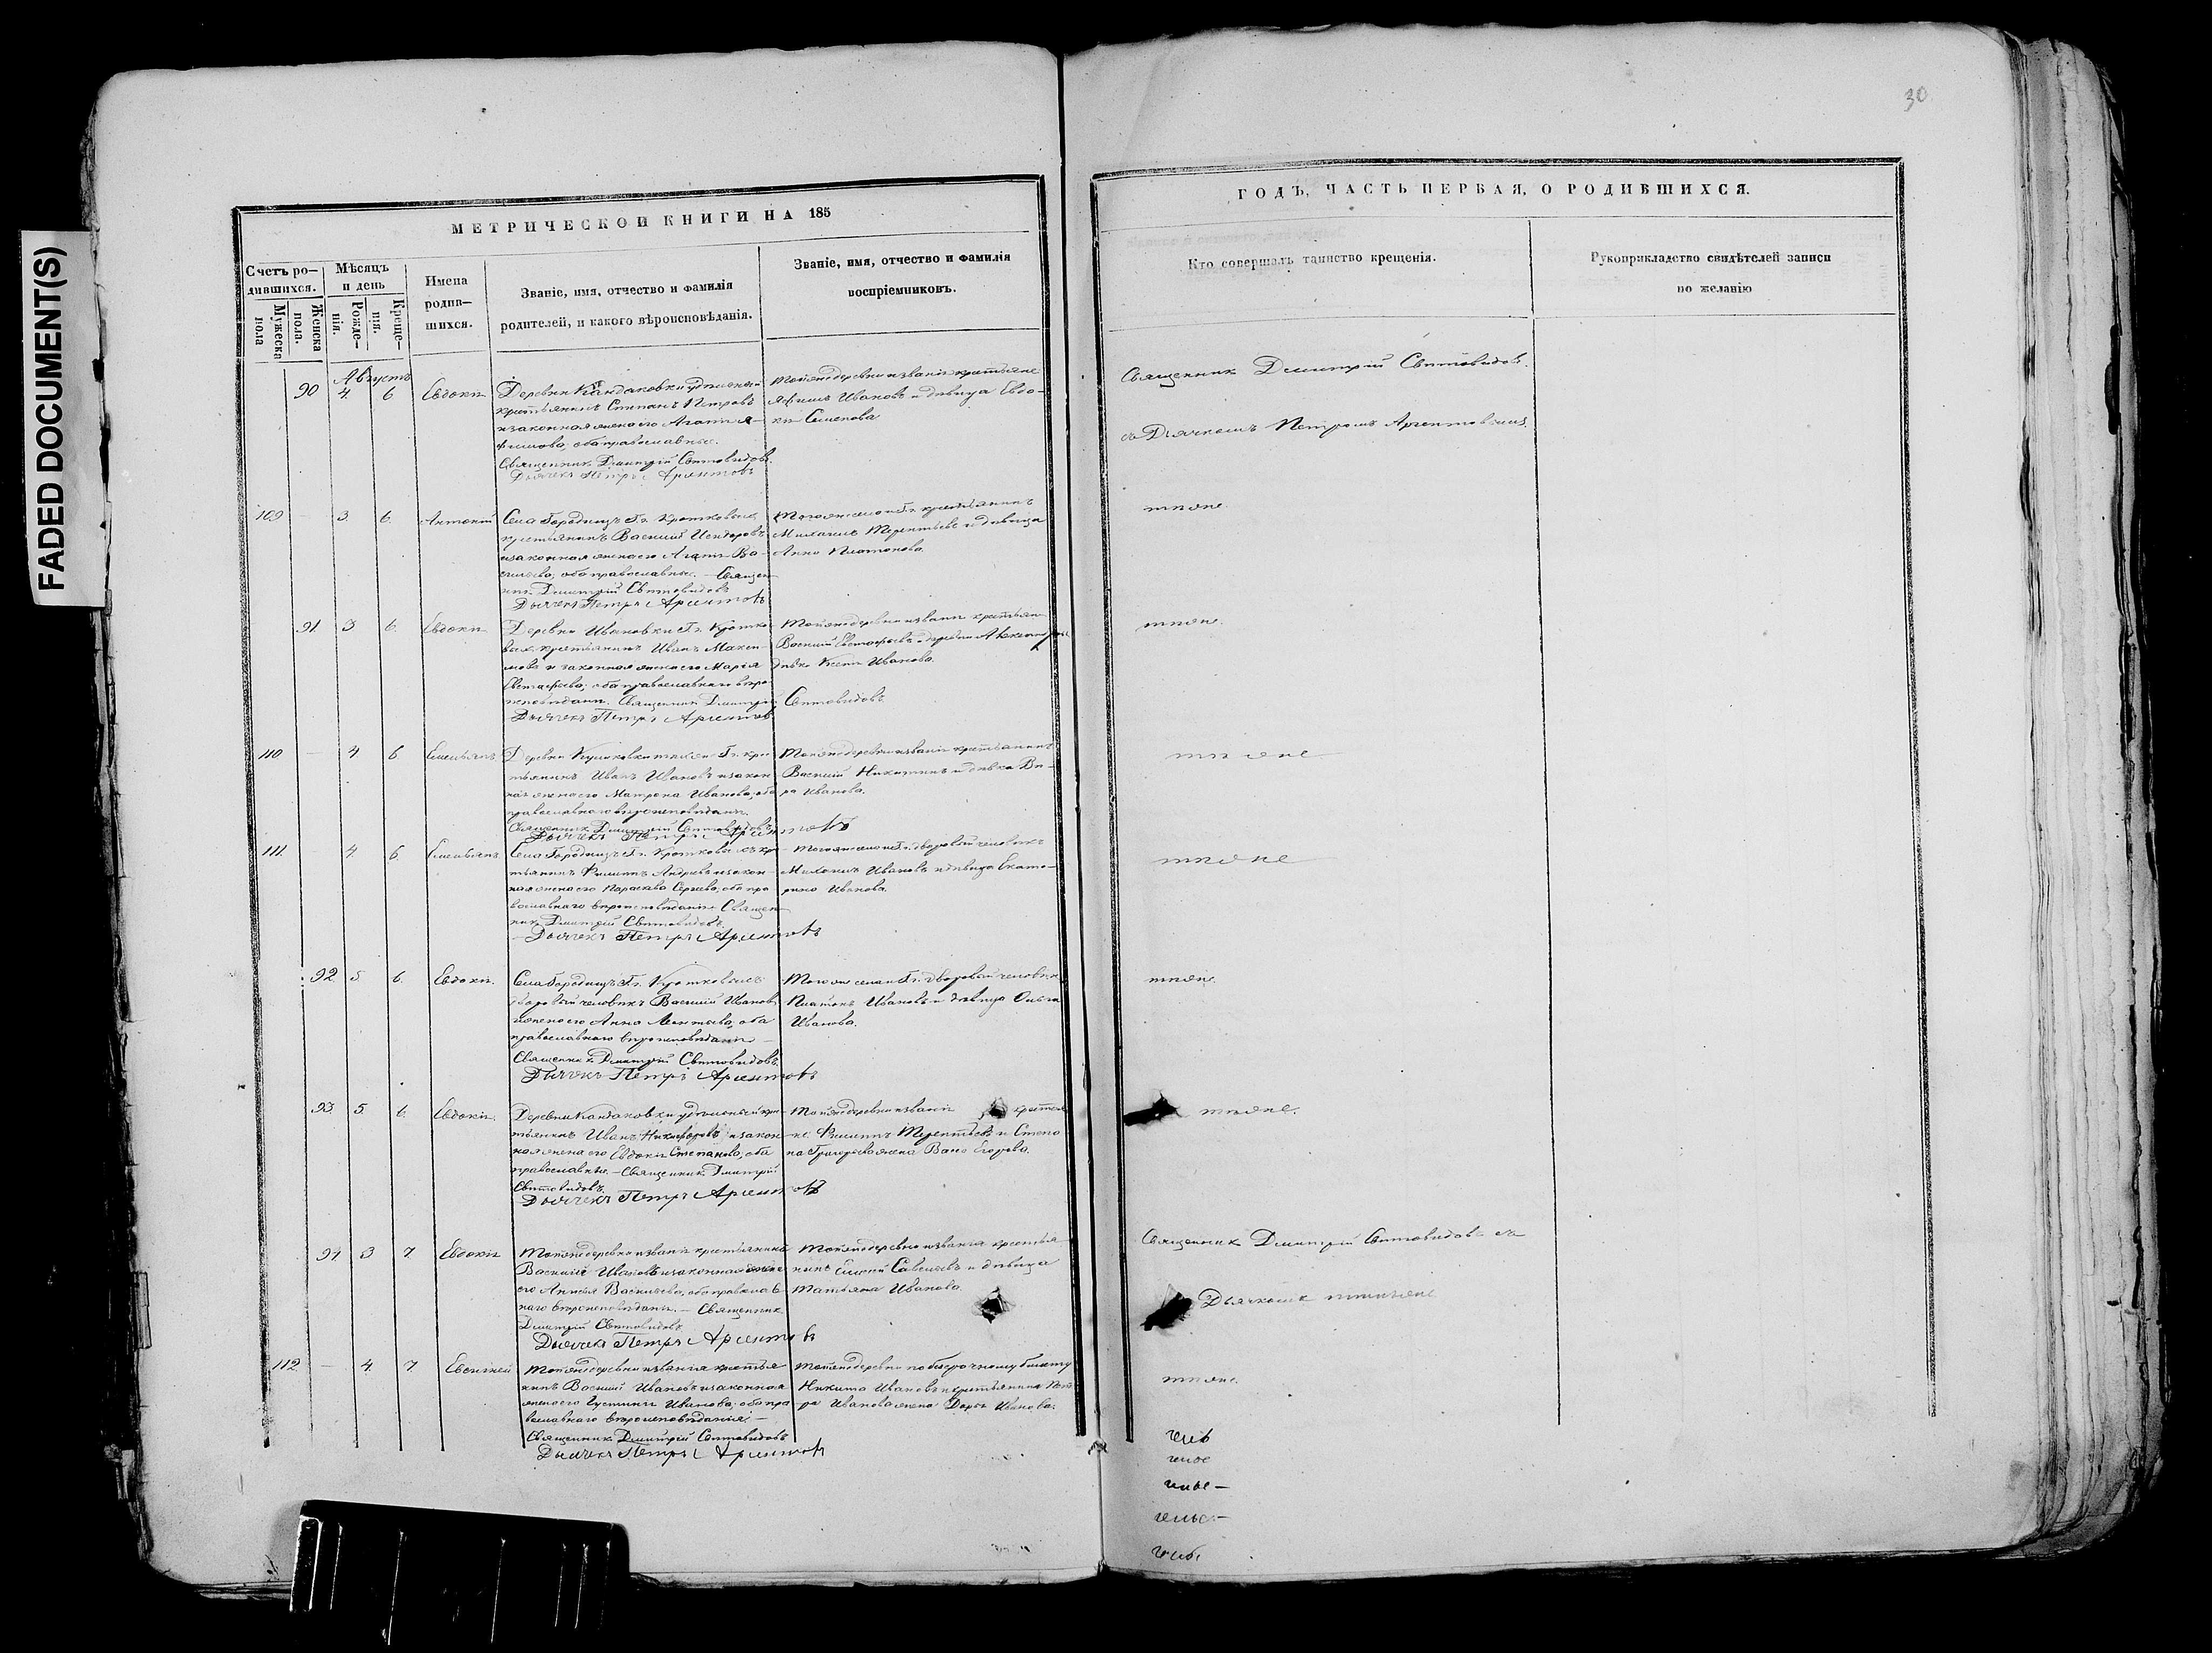 FADED DOCUMENT(S)
30
МЕТРИЧЕСКОЙ КНИГИ НА 185
ГОДЪ, ЧАСТЬ ПЕРВАЯ, О РОДИВШИХСЯ.
Счетъ ро-
дившихся.
Мужеска
пола
Женска
пола.
Мѣсяцъ
и день
Рожде-
нія.
Креще-
нія.
Имена
родив-
шихся.
Званіе, имя, отчество и фамилія
родителей, и какого вѣроисповѣданія.
Званіе, имя, отчество и фамилія
воспріемниковъ.
Кто совершалъ таинство крещенія.
Рукоприкладство свидѣтелей записи
по желанію
Августъ
90 4. 6 Евдокія
Деревни Кандаковки удѣльный
крестьянинъ Степанъ Петровъ
и законная жена его Агапія
оба православные.
Священникъ Дмитрій Свѣтовидовъ.
Дьячекъ Петръ Аргентовъ
Той же деревни и званія крестьяне
Ивановъ и дѣвица Евдо-
кія Семенова
Священник Дмитрій Свѣтовидов.
съ Дьячкомъ Петромъ Аргентовымъ
109 — 3. 6. Антоній
Села Городищъ Гг. Кротковыхъ
крестьянинъ Василій
и законная жена его Агапія Ва-
сильева, оба православные. — Священ-
никъ Дмитрій Свѣтовидовъ
Дьячекъ Петръ Аргентовъ
Того же села и Гг. крестьянинъ
Михаилъ Терентьевъ и дѣвица
Анна Платонова.
тѣ же
91. 3 6. Евдокія
Деревни Ивановки Гг. Кротко-
выхъ крестьянинъ Иванъ Макси-
мовъ и законная жена его Марія
Евстафьева; оба православнаго вѣро-
исповѣданія. Священникъ Дмитрій Свѣтовидовъ
Дьячекъ Петръ Аргентовъ
Той же деревни и званія крестьян-
Василій Евстафьевъ
дѣвка Ксенія Иванова.
тѣ же.
110 — 4 6 Емельянъ
Деревни
крестьянинъ Иванъ Ивановъ и закон-
ная жена его Матрона Иванова; оба
православнаго вѣроисповѣданія.
Священникъ Дмитрій Свѣтовидовъ
Дьячекъ Петръ Аргентовъ
Той же деревни и званія крестьянинъ
Василій Никитинъ и дѣвка Вѣ-
ра Иванова.
тѣ же
111. 4. 6. Емельянъ
Села Городищъ Гг. Кротковыхъ кре-
стьянинъ Филиппъ Андреевъ и закон-
ная жена его Параскева Сергеева; оба пра-
вославнаго вѣроисповѣданія. Священ-
никъ Дмитрій Свѣтовидовъ
Дьячекъ Петръ Аргентовъ
Того же села и Гг. дворовый человѣкъ
Михаилъ Ивановъ и дѣвица Екате-
рина Иванова.
тѣ же
92. 5. 6. Евдокія.
Села Городищъ Гг. Кротковыхъ
дворовый человѣкъ Василій Ивановъ
и жена его Анна Леонтьева; оба
православнаго вѣроисповѣданія —
Священникъ Дмитрій Свѣтовидовъ
Дьячекъ Петръ Аргентовъ
Того же села и Гг. дворовый человѣкъ
Платонъ Ивановъ и дѣвица Ольга
Иванова.
тѣ же.
93. 5. 6. Евдокія.
Деревни Кандаковки удѣльный кре-
стьянинъ Иванъ Никифоровъ и закон-
ная жена его Евдокія Степанова; оба
православные. — Священникъ Дмитрій
Свѣтовидовъ.
Дьячекъ Петръ Аргентовъ
Той же деревни и званія крестья-
не: Филиппъ Терентьевъ и Степа-
на Григорьева жена Егорова.
тѣ же.
94. 3 7. Евдокія
Той же деревни и званія крестьянинъ
Василій Ивановъ и законная жена
его Васильева, оба православ-
наго вѣроисповѣданія. — Священникъ
Дмитрій Свѣтовидовъ
Дьячекъ Петръ Аргентовъ
Той же деревни и званія крестья-
нинъ Савельевъ и дѣвица
Татьяна Иванова.
Священник Дмитрій Свѣтовидовъ съ
Дьячкомъ тѣмъ же
112 — 4. 7 Евсигней
Той же деревни и званія крестья-
нинъ Василій Ивановъ и законная
жена его Устинья Иванова; оба пра-
вославнаго вѣроисповѣданія; —
Священникъ Дмитрій Свѣтовидовъ
Дьячекъ Петръ Аргентовъ
Той же деревни по безсрочному билету
Никита Ивановъ и крестьянина Пет-
ра Иванова жена Дарья Иванова.
тѣ же.